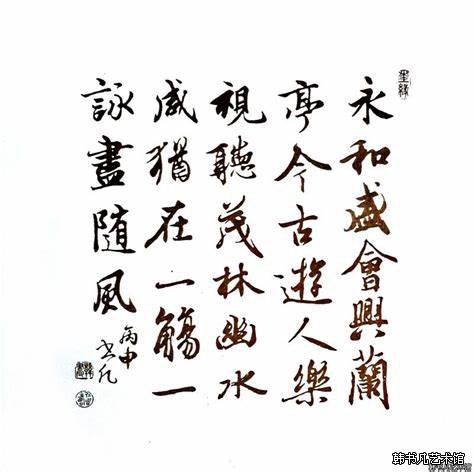 永和盛會興蘭
亭今古遊人樂
視聽茂林幽水
咸猶在一觴一
詠盡隨風
丙申
书凡
韩书凡艺术馆